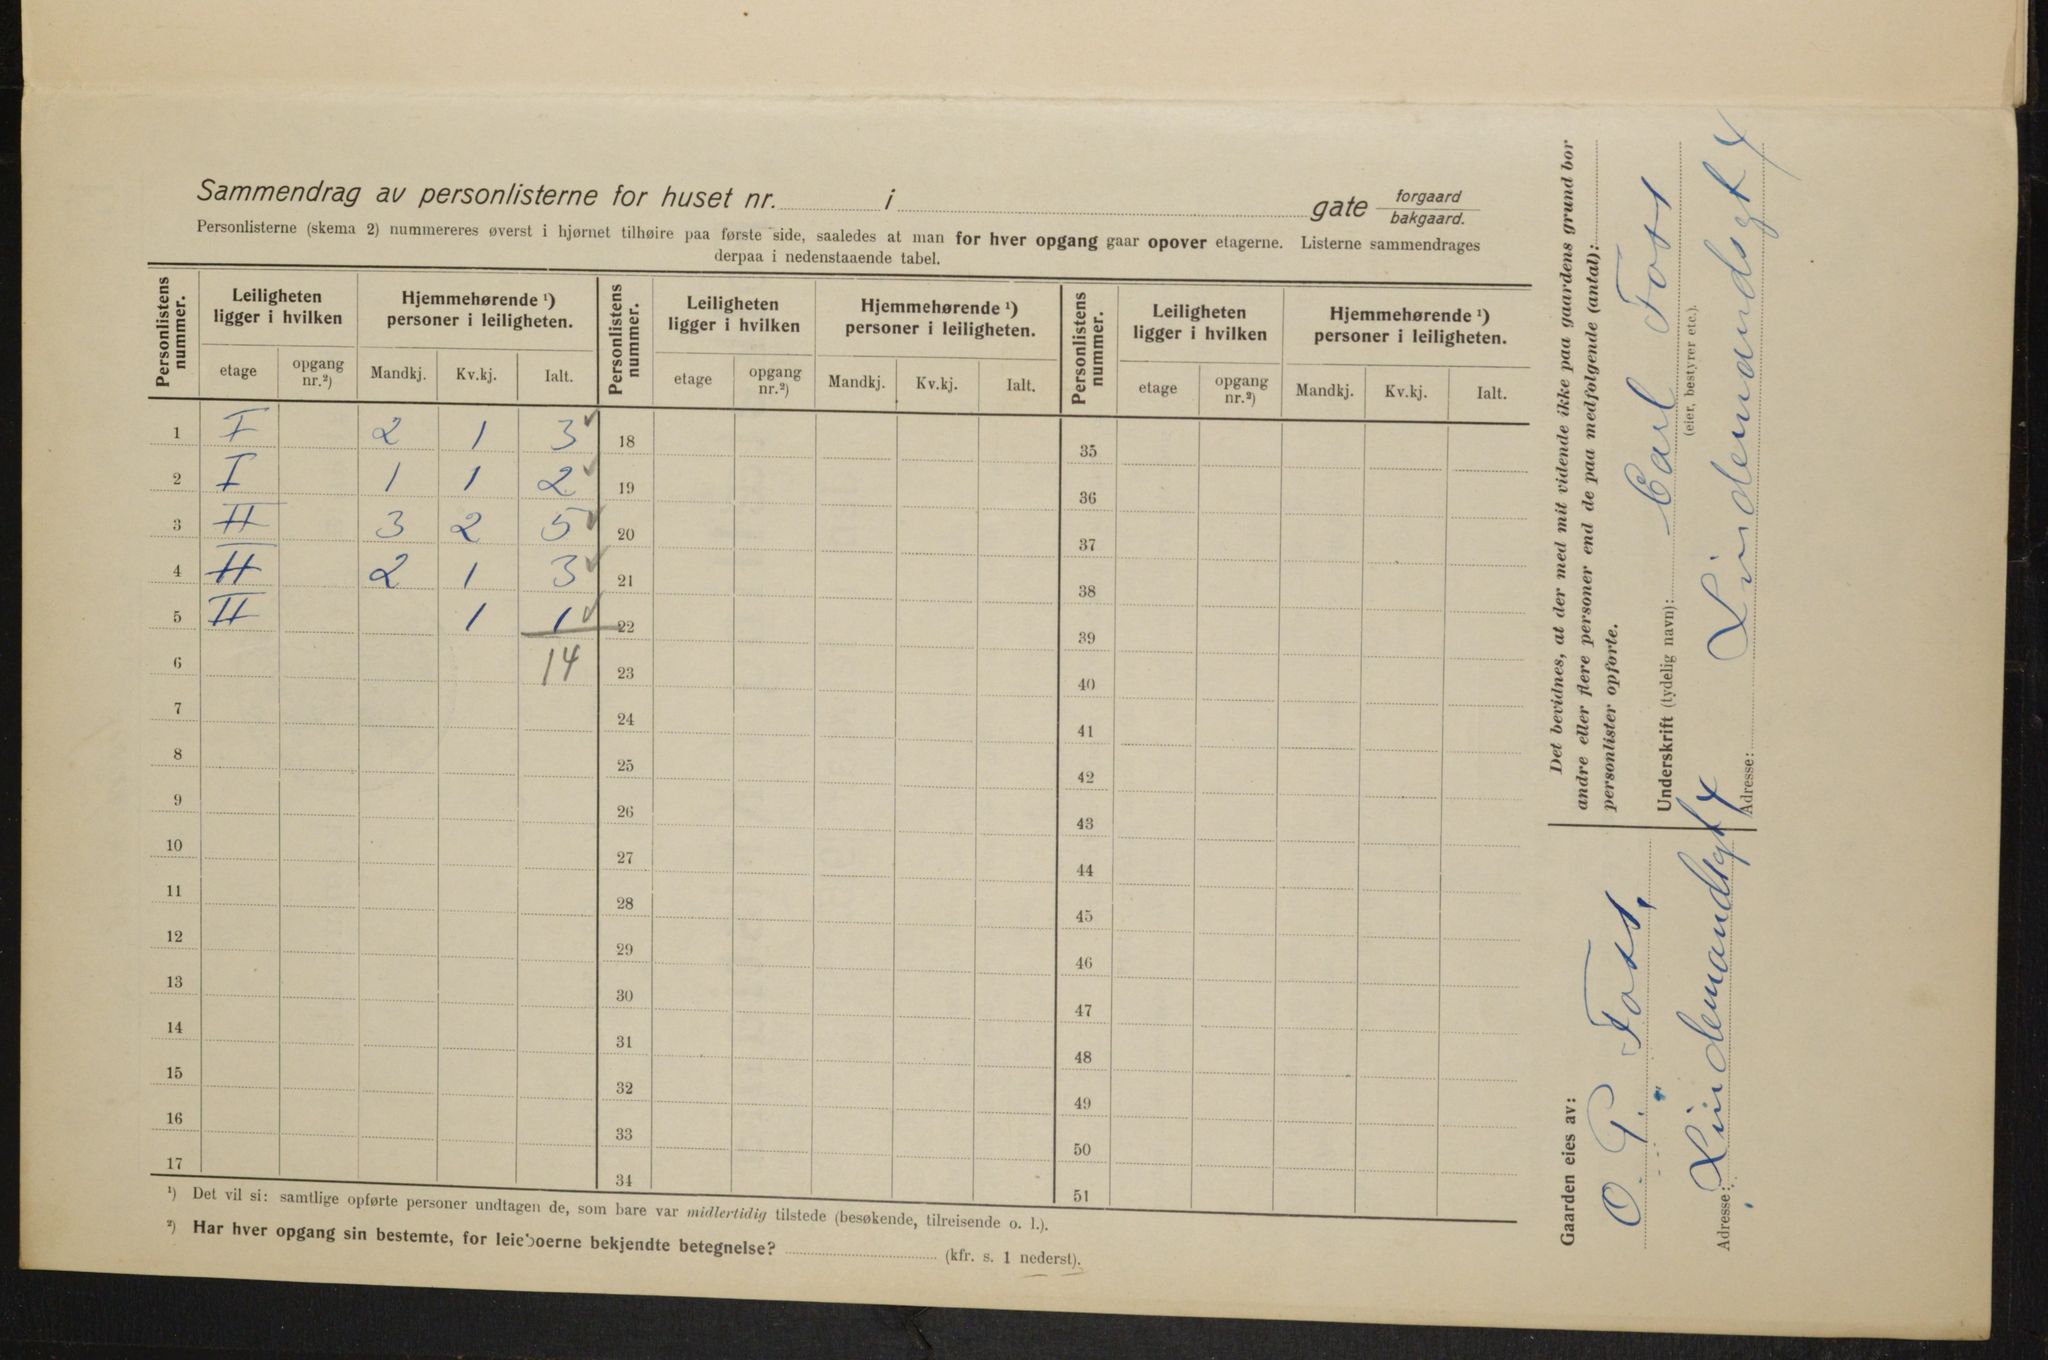 Sammendrag av personlisterne for huset nr. i gate forgaard
bakgaard.
Personlisterne (skema 2) nummereres øverst i hjørnet tilhøire paa første side, saaledes at man for hver opgang gaar opover etagerne. Listerne sammendrages
derpaa i nedenstaaende tabel.
Personlistens nummer. Leiligheten ligger i hvilken Hjemmehørende ¹) personer i leiligheten. Personlistens nummer. Leiligheten ligger i hvilken Hjemmehørende ¹) personer i leiligheten. Personlistens nummer. Leiligheten ligger i hvilken Hjemmehørende ¹) personer i leiligheten.
etage opgang nr.²) Mandkj. Kv.kj. Ialt. etage opgang nr.²) Mandkj. Kv.kj. Ialt. etage opgang nr.²) Mandkj. Kv.kj. Ialt.
1 I 2 1 3 ✓ 18 35
2 I 1 1 2 ✓ 19 36
3 II 3 2 5 ✓ 20 37
4 II 2 1 3 ✓ 21 38
5 II 1 1 ✓ 22 39
6 14 23 40
7 24 41
8 25 42
9 26 43
10 27 44
11 28 45
12 29 46
13 30 47
14 31 48
15 32 49
16 33 50
17 34 51
¹) Det vil si: samtlige opførte personer undtagen de, som bare var midlertidig tilstede (besøkende, tilreisende o. l.).
²) Har hver opgang sin bestemte, for leieboerne bekjendte betegnelse? (kfr. s. 1 nederst).
Det bevidnes, at der med mit vidende ikke paa gaardens grund bor
andre eller flere personer end de paa medfølgende (antal):
personlister opførte.
Carl Foss
Underskrift (tydelig navn):
(eier, bestyrer etc.).
Lindemandsgt 4
Adresse:
Gaarden eies av:
O. G. Foss.
Lindemandsgt 4
Adresse: